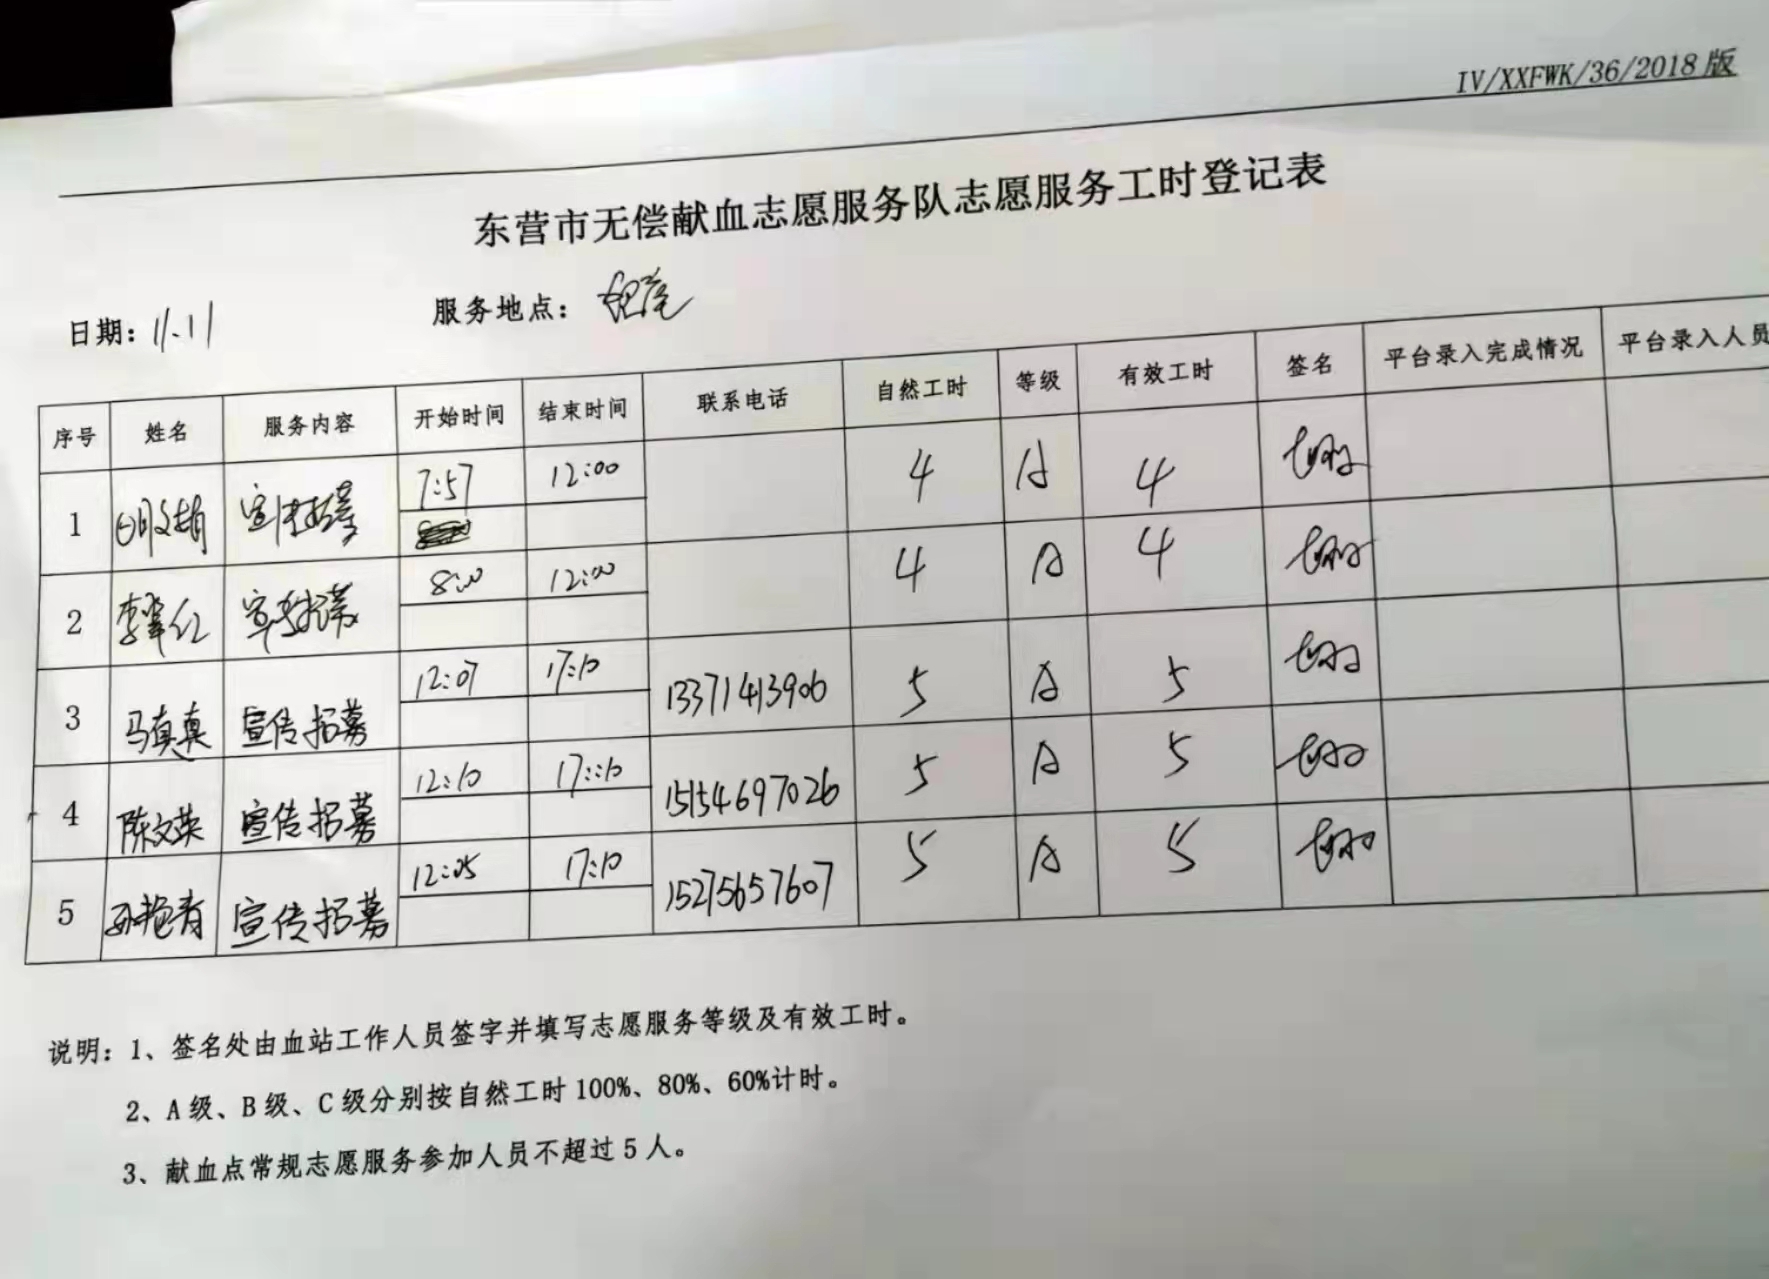 IV/XXFWK/36/2018 版
东营市无偿献血志愿服务队志愿服务工时登记表
日期: 11.11 服务地点:
序号 姓名 服务内容 开始时间 结束时间 联系电话 自然工时 等级 有效工时 签名 平台录入完成情况 平台录入人员
1 宣传招募 7:57 12:00 4 A 4
2 宣传招募 8:00 12:00 4 A 4
3 马真真 宣传招募 12:07 17:10 13371413906 5 A 5
4 陈文英 宣传招募 12:10 17:10 15154697026 5 A 5
5 孙艳青 宣传招募 12:05 17:10 15275657607 5 A 5
说明: 1、签名处由血站工作人员签字并填写志愿服务等级及有效工时。
2、A 级、B 级、C 级分别按自然工时 100%、80%、60%计时。
3、献血点常规志愿服务参加人员不超过 5 人。